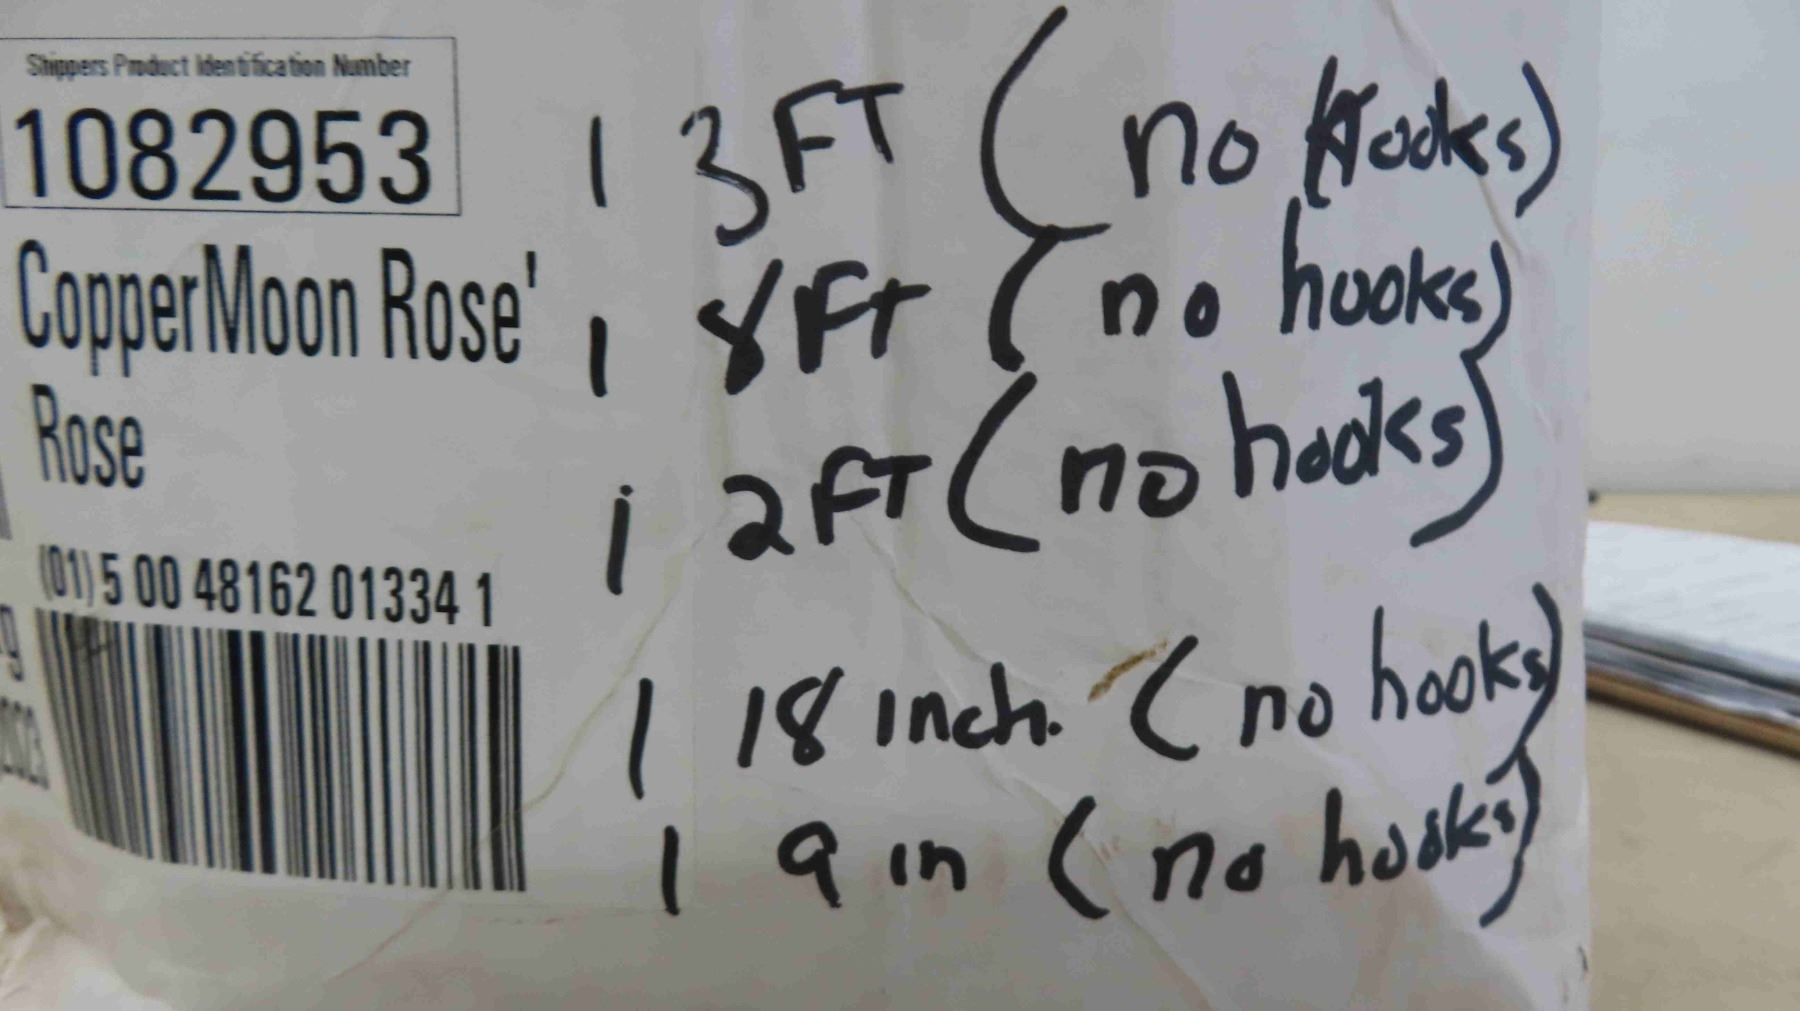 Shippers Product Identification Number
1082953
CopperMoon Rose'
Rose
(01) 5 00 48162 01334 1
1 3FT (no Hooks)
1 8Ft (no hooks)
1 2FT (no hooks)
1 18 inch. (no hooks)
1 9 in (no hooks)